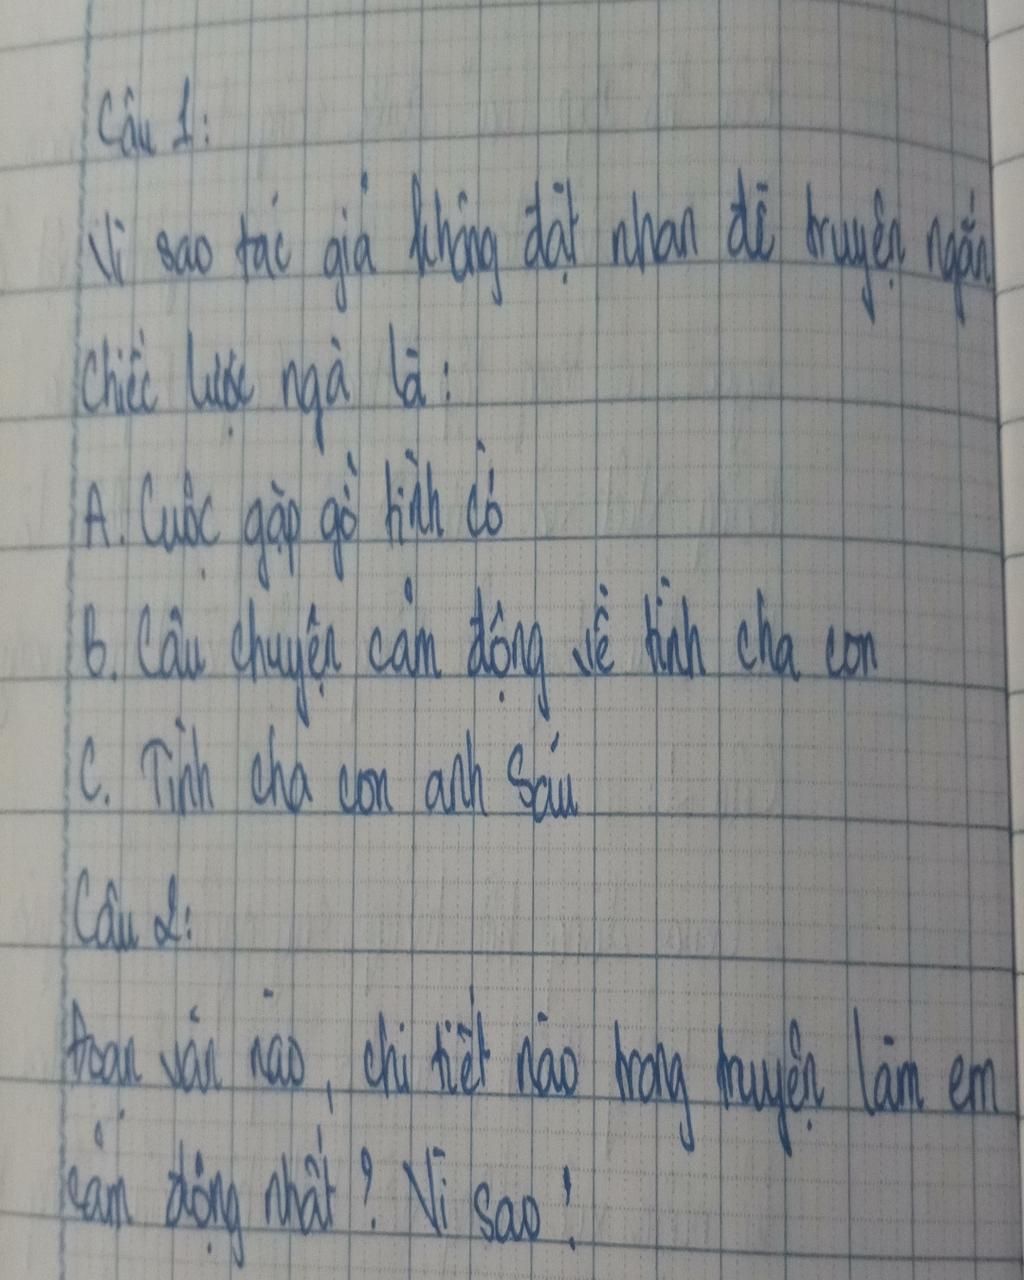 Câu 1:
Vì sao tác giả không đặt nhan đề truyện ngắn
Chiếc lược ngà là:
A. Cuộc gặp gỡ tình cờ
B. Câu chuyện cảm động về tình cha con
C. Tình cha con anh Sáu
Câu 2:
Đoạn văn nào, chi tiết nào trong truyện làm em
cảm động nhất? Vì sao?